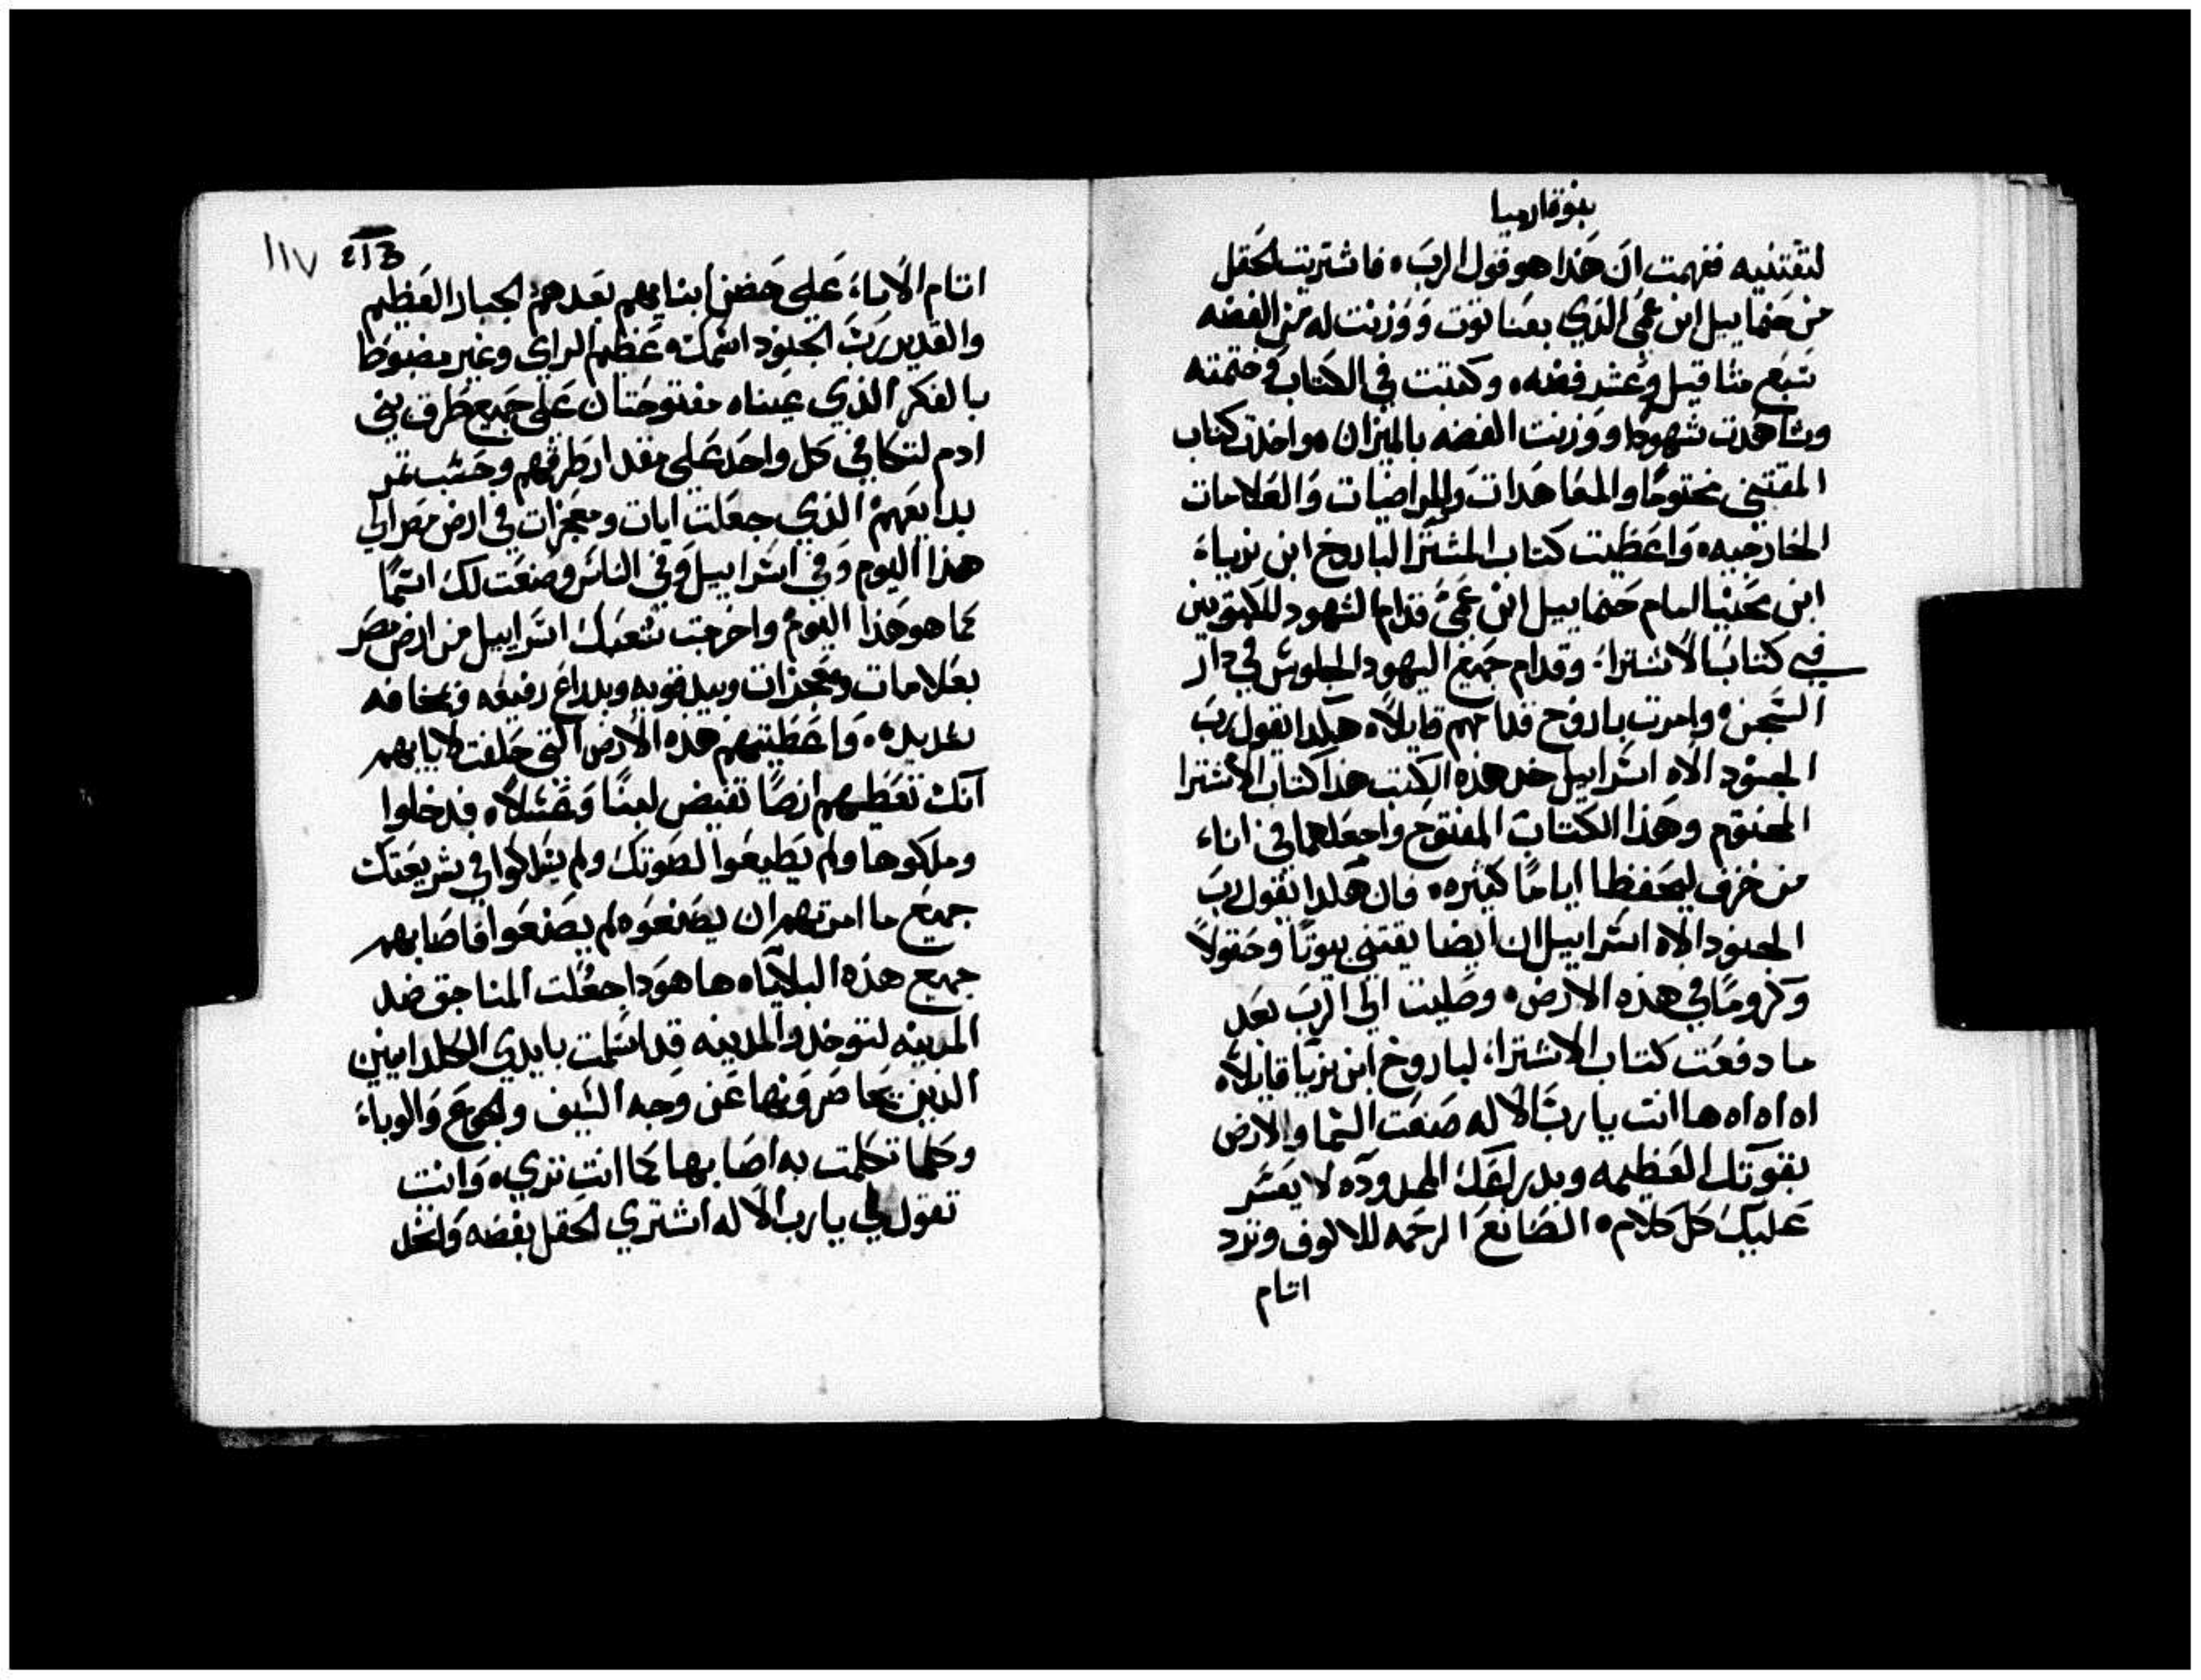 نبوة ارميا
لتقتنيه ففهمت ان هذا هو قول الرب. فاشتريت الحقل
من حنماييل ابن عمي الذي بعناتوت ووزنت له من الفضه
سبع مثاقيل وعشر فضه. وكتبت في الكتاب وختمته
وشاهدت شهودا ووزنت الفضه بالميزان. واخذت كتاب
المقتني مختوما والمعاهدات والمراضيات والعلامات
الخارجيه. واعطيت كتاب المشترا لباروخ ابن نرياء
ابن محنيا امام حنماييل ابن عمي قدام الشهود المكتوبين
في كتاب الاشتراء وقدام جميع اليهود الجلوس في دار
السجن. وامرت باروخ قدامهم قايلا. هكذا يقول رب
الجنود الاه اسراييل خذ هذه الكتب هذا كتاب الاشترا
المختوم وهذا الكتاب المفتوح واجعلهما في اناء
من خزف ليحفظا اياما كثيره. فان هكذا يقول رب
الجنود الاه اسراييل ان ايضا يقتني بيوتا وحقولا
وكروما في هذه الارض. وصليت الي الرب بعد
ما دفعت كتاب الاشتراء لباروخ ابن نريا قايلا.
اه اه اه ها انت يا رب الاله صنعت السما والارض
بقوتك العظيمه وبدراعك الممدوده. لا يعسر
عليك كل كلام. الصانع الرحمه للالوف وترد
اتام
١١٧ 213
اتام الاباء علي حضن ابنايهم بعدهم الجبار العظيم
والقدير رب الجنود اسمك. عظيم الراي وغير مضبوط
بالفكر الذي عيناه مفتوحتان علي جميع طرق بني
ادم لتكافي كل واحد علي مقدار طرقهم وحسب ثمر
بدايعهم الذي جعلت ايات ومعجزات في ارض مصر الي
هذا اليوم وفي اسراييل وفي الناس وصنعت لك اسما
كما هو هذا اليوم واخرجت شعبك اسراييل من ارض مصر
بعلامات ومعجزات وبيد قويه وبدراع رفيعه وبمخافه
شديده. واعطيتهم هذه الارض التي حلفت لابايهم
انك تعطيهم ارضا تفيض لبنا وعسلا. فدخلوا
وملكوها ولم يطيعوا لصوتك ولم يسلكوا في شريعتك
جميع ما امرتهم ان يصنعوه لم يصنعوا فاصابهم
جميع هذه البلايا. ها هوذا جعلت المناجق ضد
المدينه لتوخذ والمدينه قد اسلمت بايدي الكلدانيين
الذين يحاصرونها عن وجه السيف والجوع والوباء
وكلما تكلمت به اصابها كما انت تري. وانت
تقول لي يا رب الاله اشتري الحقل بفضه واشهد